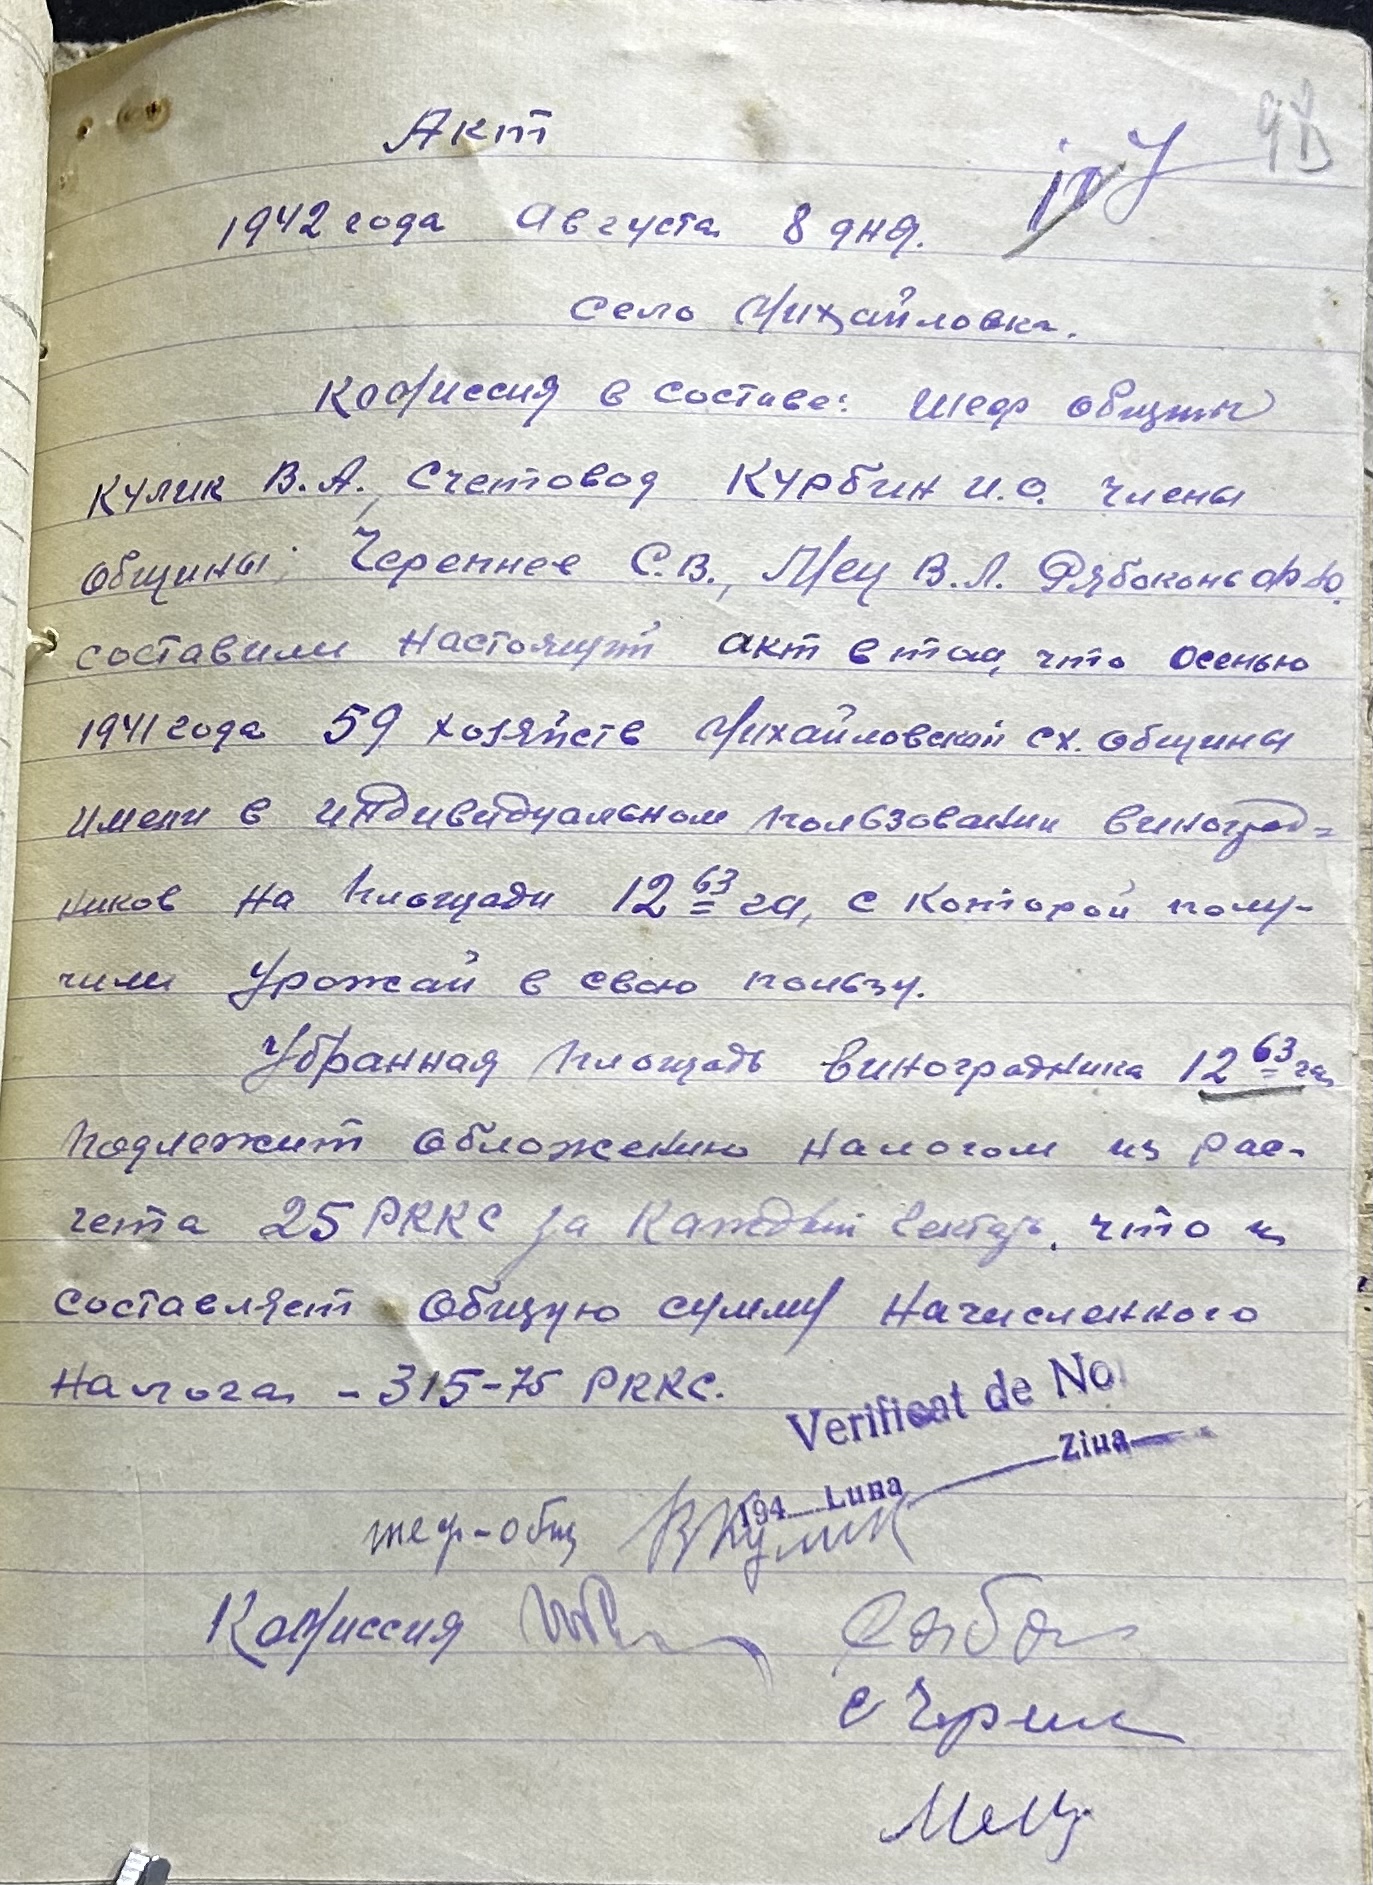 Акт
1942 года Августа 8 дня.
село Михайловка.
Комиссия в составе: Шеф общины
Кулик В.А., Счетовод Курбин И.О. члены
общины; С.В., Мец В.Л. Рябоконь Ф.Ю.
составили настоящий акт в том, что осенью
1941 года 59 хозяйств Михайловской с.х. общины
имели в индивидуальном пользовании виноград=
ников на площади 12 63 га, с которой полу-
чили урожай в свою пользу.
Убранная площадь виноградника 12 63 га,
подлежит обложению налогом из рас-
чета 25 РККС за каждый гектар, что и
составляет общую сумму начисленного
налога - 315-75 РККС.
Verificat de No
194 Luna Ziua
шеф-общ ВКулик
Комиссия
Мец